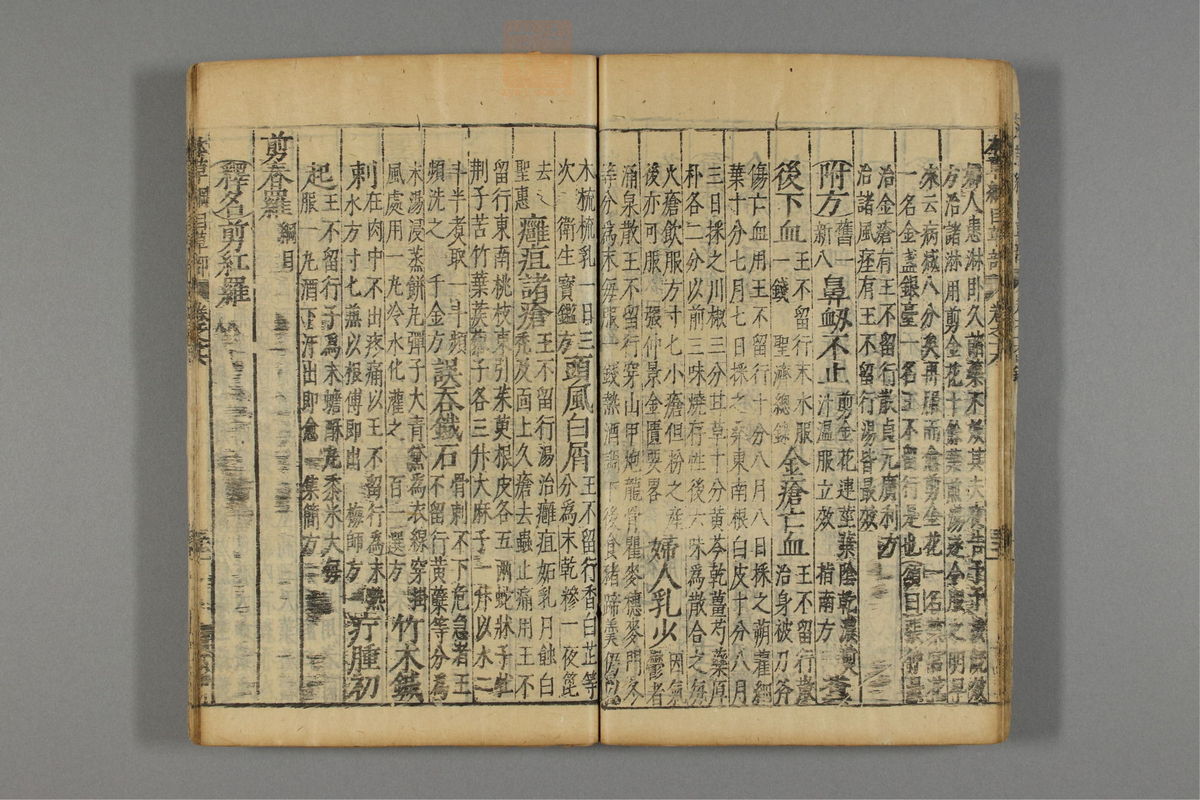 婦人患淋卧久諸藥不效其夫夜告予予按既效
方治諸淋用剪金花十餘葉煎湯遂令服之明早
來云病減八分矣再服而愈剪金花一名禁宮花
一名金盞銀臺一名王不留行是也頌曰張仲景
治金瘡有王不留行散貞元廣利方
治諸風痓有王不留行湯皆最效
附方舊一新八 鼻衄不止 剪金花連莖葉陰乾濃煎汁溫服立效 指南方 糞
後下血 王不留行末水服一錢 聖濟總錄 金瘡亡血 王不留行散治身被刀斧
傷亡血用王不留行十分八月八日採之蒴藋細
葉十分七月七日採之桑東南根白皮十分八月
三日採之川椒三分甘草十分黃芩乾薑芍藥厚
朴各二分以前三味燒存性後六味為散合之每
大瘡飲服方寸匕小瘡但粉之產後亦可服 張仲景金匱要畧 婦人乳少 因氣鬱者
涌泉散王不留行穿山甲炮龍骨瞿麥穗麥門冬
等分為末每服一錢熱酒調下後食豬蹄羹仍以
木梳梳乳一日三次 衛生寶鑑方 頭風白屑 王不留行香白芷等分為末乾糝一夜篦
去 聖惠 癰疽諸瘡 王不留行湯治癰疽妬乳月蝕白禿及面上久瘡去蟲止痛用王不
留行東南桃枝東引茱萸根皮各五兩蛇牀子牡
荊子苦竹葉蒺藜子各三升大麻子一升以水二
斗半煮取一斗頻頻洗之 千金方 誤吞鐵石 骨刺不下危急者王不留行黃蘗等分為
末湯浸蒸餅丸彈子大青黛為衣線穿掛風處用一丸冷水化灌之 百一選方 竹木鍼
刺 在肉中不出疼痛以王不留行為末熟水方寸匕兼以根傅即出 梅師方 疔腫初
起 王不留行子為末蟾酥丸黍米大每服一丸酒下汗出即愈 集簡方
剪春羅 綱目
釋名剪紅羅
本草綱目草部 卷之十六